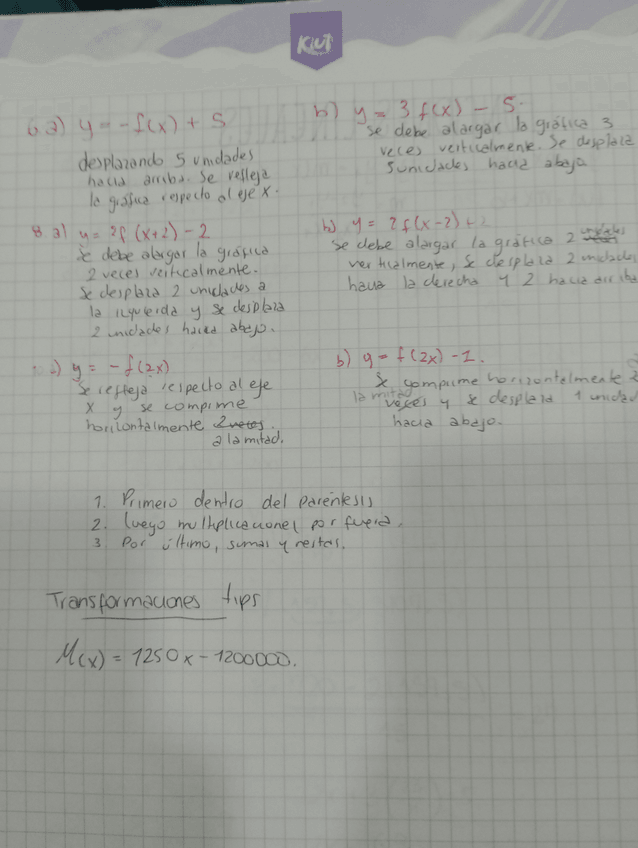 Kiut
6 a) y = -f(x) + 5
desplazando 5 unidades
hacia arriba. Se refleja
la gráfica respecto al eje x.
b) y = 3 f(x) - 5.
se debe alargar la gráfica 3
veces verticalmente. Se desplaza
5 unidades hacia abajo
8 a) y = 2f (x+2) - 2
Se debe alargar la gráfica
2 veces verticalmente.
Se desplaza 2 unidades a
la izquierda y se desplaza
2 unidades hacia abajo.
b) y = 2 f(x-2) + 2
se debe alargar la gráfica 2
verticalmente, se desplaza 2 unidades
hacia la derecha y 2 hacia arriba
a) y = -f(2x)
Se refleja respecto al eje
x y se comprime
horizontalmente 2 veces
a la mitad.
b) y = f(2x) - 1.
Se comprime horizontalmente
la mitad
veces y se desplaza 1 unidad
hacia abajo.
1. Primero dentro del paréntesis
2. Luego multiplicaciones por fuera.
3. Por último, sumas y restas.
Transformaciones tips
M(x) = 1250x - 1200000.